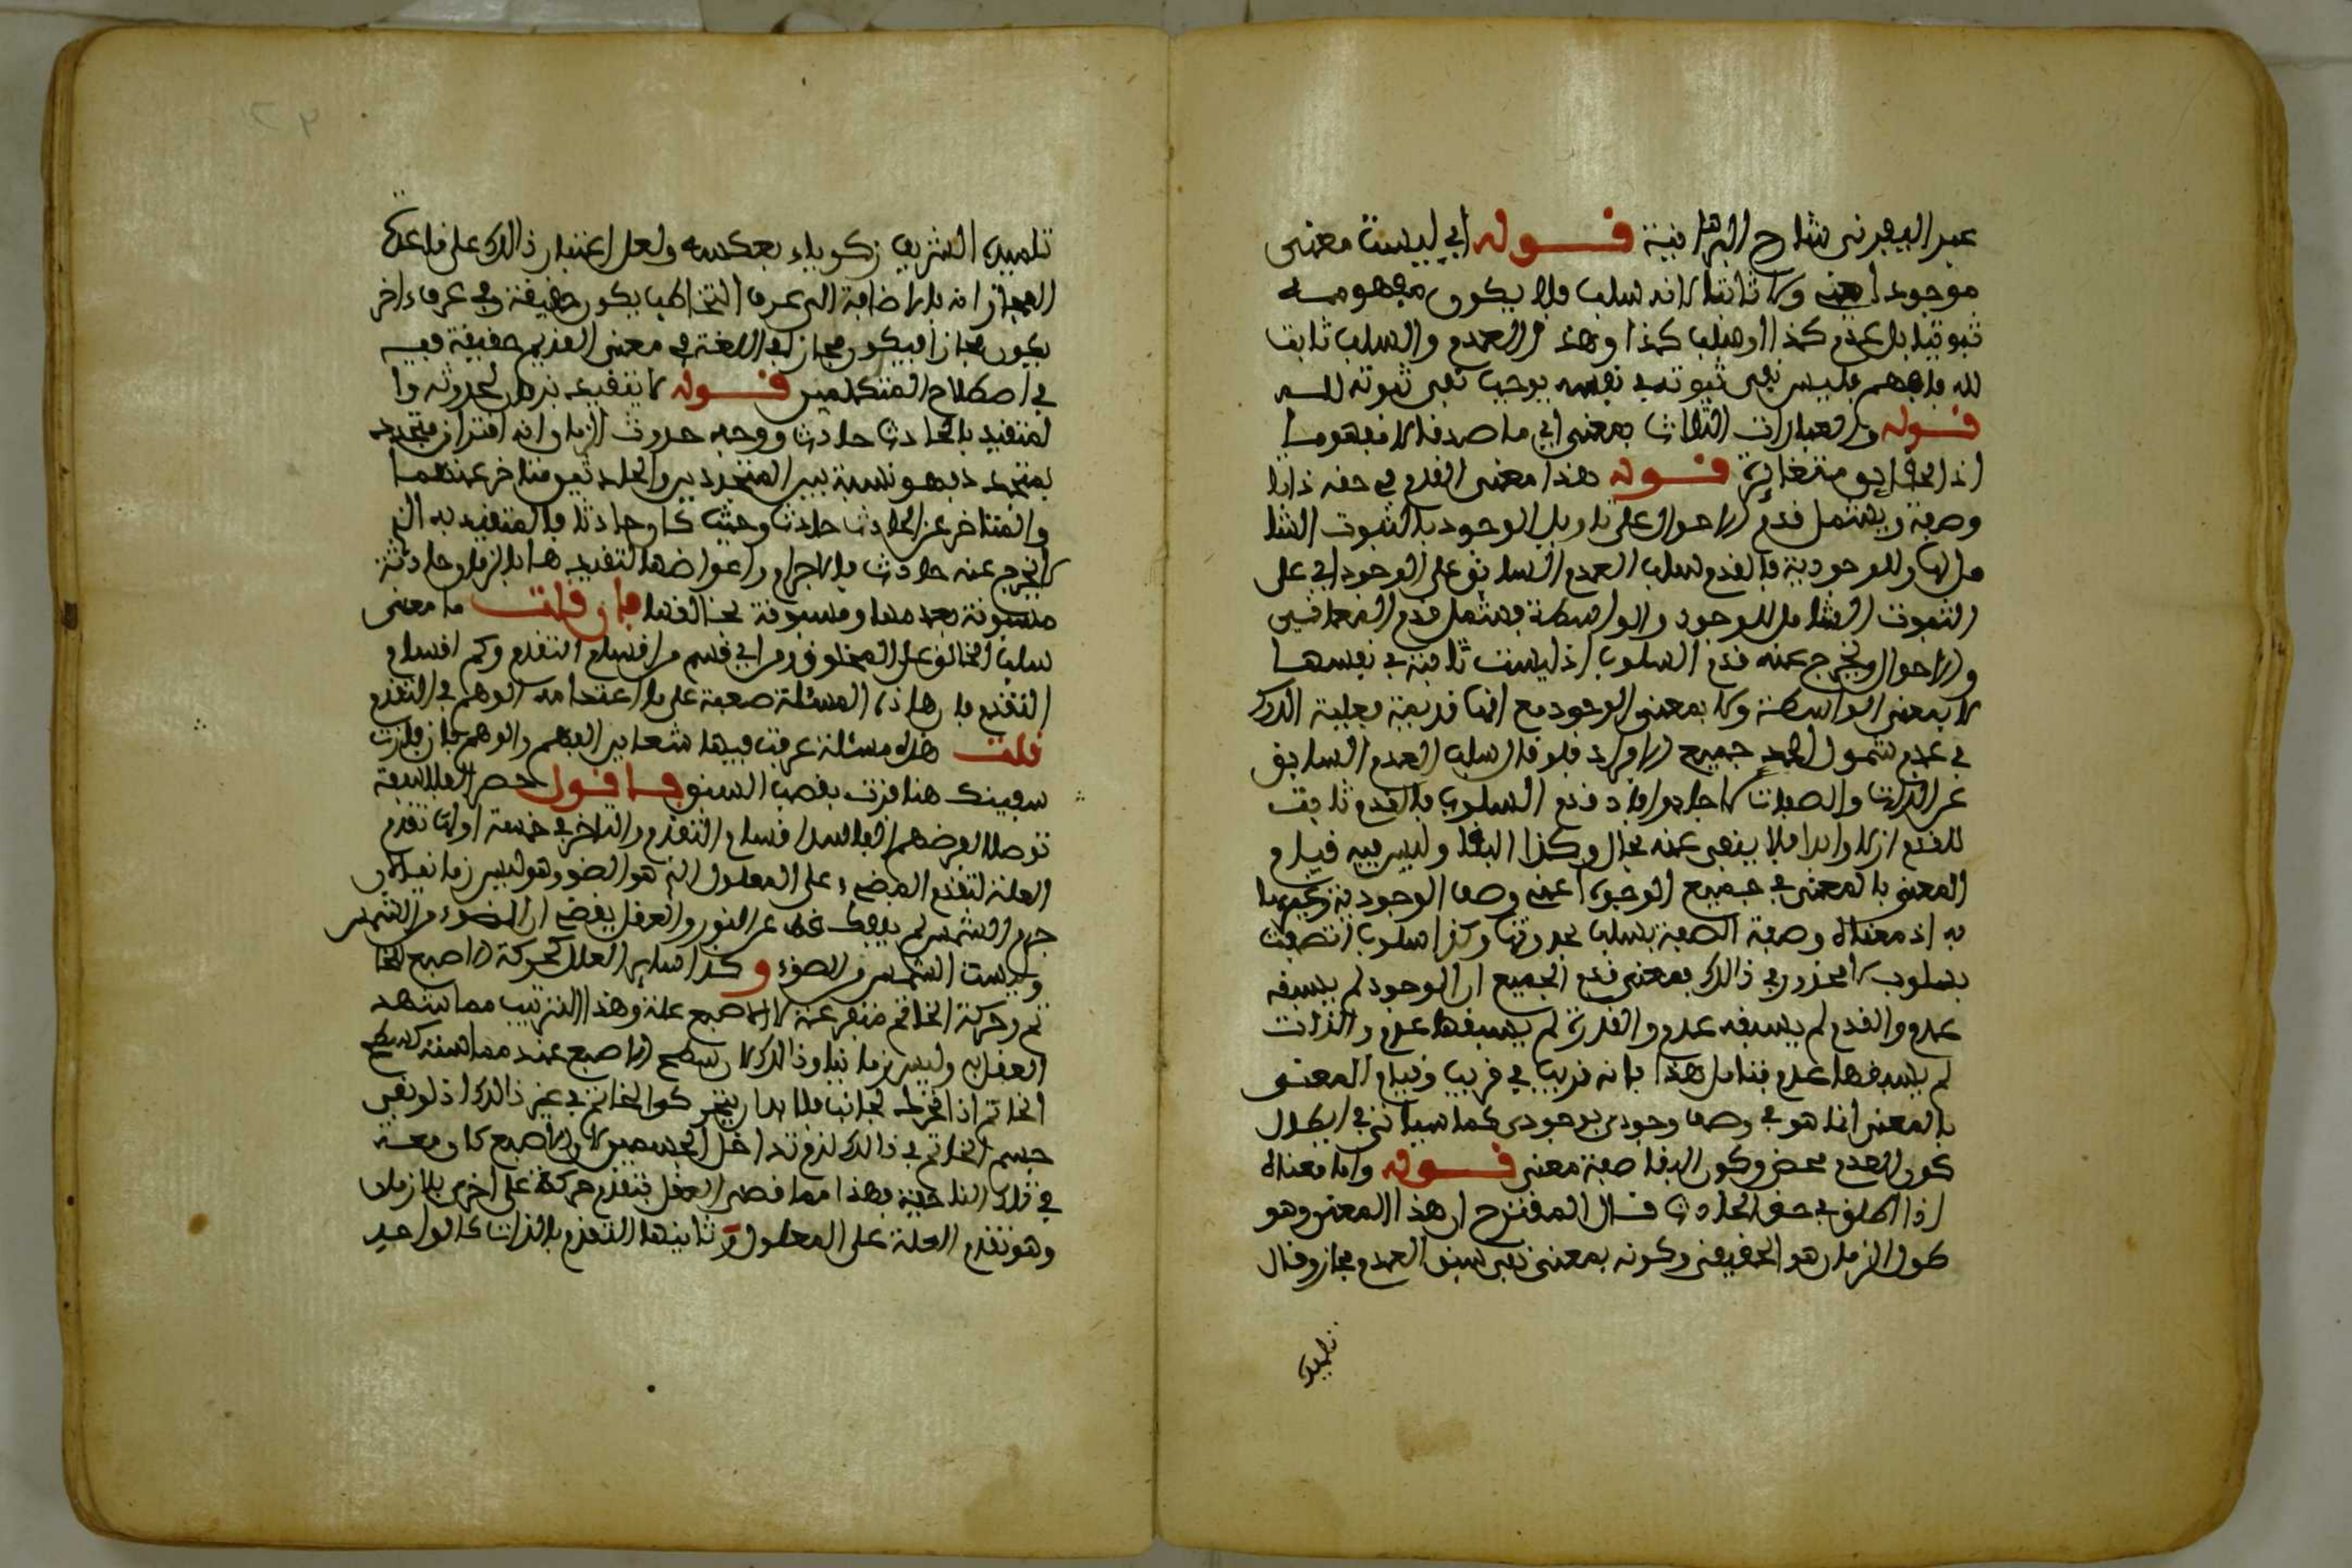 عن اليفرني شارح البرهانية قوله أي ليست معنى
موجودا يعني ولا ثابتا لأنه سلب فلا يكون مفهومه
ثبوتيا بل عدم كذا أو سلب كذا وهذا العدم والسلب ثابت
لله فافهم فليس نفي ثبوته في نفسه يوجب نفي ثبوته لله
قوله والعبارات الثلاث بمعنى أي ما صدقا لا مفهوما
إذ الحقايق متغايرة قوله هذا معنى القدم في حقه ذاتا
وصفة ويشمل قدم الأحوال على تاويل الوجود بالثبوت الشا
مل لها وللوجودية فالقدم سلب العدم السابق على الوجود أي على
الثبوت الشامل للوجود والواسطة فيشمل قدم المعاني
والأحوال ويخرج عنه قدم السلوب إذ ليست ثابتة في نفسها
لا بمعنى الواسطة ولا بمعنى الوجود مع انها قديمة فعليه الدرك
في عدم شمول الحد جميع الأفراد فلو قال سلب العدم السابق
عن الذات والصفات لأجاد وأفاد قدم السلوب فالقدم ثابت
للقدم أزلا وأبدا فلا ينفى عنه بحال وكذا البقا وليس فيه قيام
المعنى بالمعنى في جميع الوجوه أعني وصف الوجودية
به إذ معناه وصفة الصفة بسلب حدوثها وكذا سلوب اتصفت
بسلوب لا محذور في ذالك فمعنى قدم الجميع أن الوجود لم يسبقه
عدم والقدم لم يسبقه عدم والقدرة لم يسبقها عدم والذات
لم يسبقها عدم فتامل هذا فانه غريب في قريب وقيام المعنى
بالمعنى انما هو في وصف وجودي بوجودي كما سياتي في ابطال
كون القدم محض وكون البقا صفة معنى قوله وأما معناه
إذا أطلق في حق الحادث قال المقترح ان هذا المعنى وهو
طول الزمان هو الحقيقي وكونه بمعنى نفي سبق العدم مجاز وقال
تلميذه
تلميذه الشريف زكرياء بعكسه ولعل اعتبار ذالك على قاعدة
المجاز انه بالاضافة الى عرف التخاطب يكون حقيقة وفي عرف ءاخر
يكون مجازا فيكون مجازا في اللغة في معنى القديم حقيقة فيه
في اصطلاح المتكلمين قوله لا يتقيد بزمان لحدوثه وا
لمتقيد بالحادث حادث ووجه حدوث الزمان انه اقتران متجدد
بمتجدد فهو نسبة بين المتجددين والحادثين متاخر عنهما
والمتاخر عن الحادث حادث وحيث كان حادثا فالمتقيد به الذي
لا يخرج عنه حادث فالاجرام واعراضها لتقيدها بالزمان حادثة
مسبوقة بعدمها ومسبوقة بخالقها فإن قلت ما معنى
سلب الخالق على المخلوق ومن أي قسم من اقسام التقدم وكم اقسام
التقدم فان هاذه المسئلة صعبة على ما اعتدا منه الوهم في التقدم
قلت هذه مسئلة غرقت فيها مشاهير الفهم والوهم فان فازت
سفينتك هنا فزت بقصب السبق فاقول حصر الفلاسفة
توصلا لغرضهم الفاسد اقسام التقدم والتاخر في خمسة أولها تقدم
العلة لتقدم المضيء على المعلول الذي هو الضوء وهو ليس زمانيا لأن
جرم الشمس لم ينفك عن النور والعقل يقضي ان الضوء من الشمس
وليست الشمس من الضوء وكذا ساير العلل كحركة الاصبع الخا
تم وحركة الخاتم متفرعة لأن الاصبع علة وهذا الترتيب مما يشهد
العقل به وليس زمانيا وذالك لان سطح الاصبع عند مماسته كسطح
الخاتم اذا تحرك لجانب فلا بد ان يتحرك الخاتم في عين ذالك اذ لو بقي
جسم الخاتم في ذالك لزم تداخل الجسمين لان الاصبع كان معه
في تلك الناحية فهذا مما قضى العقل بتقدم حركة على اخرى بلا زمان
وهو تقدم العلة على المعلول وثانيها التقدم بالذات كالواحد